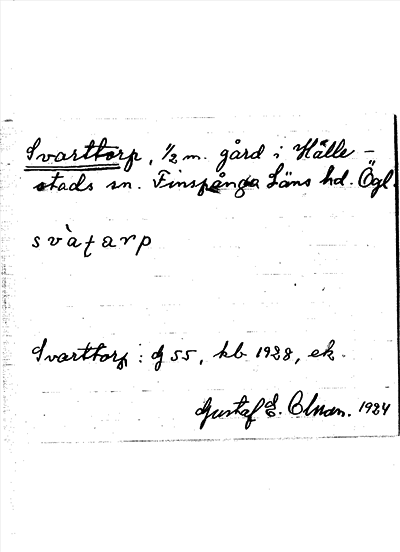 Svarttorp, 1/2 m. gård i Hälle-
stads sn. Finspånga Läns hd. Ögl.
svàt̨arp
Svarttorp: G 55, kb 1928, ek.
Gustaf E. Olman. 1924